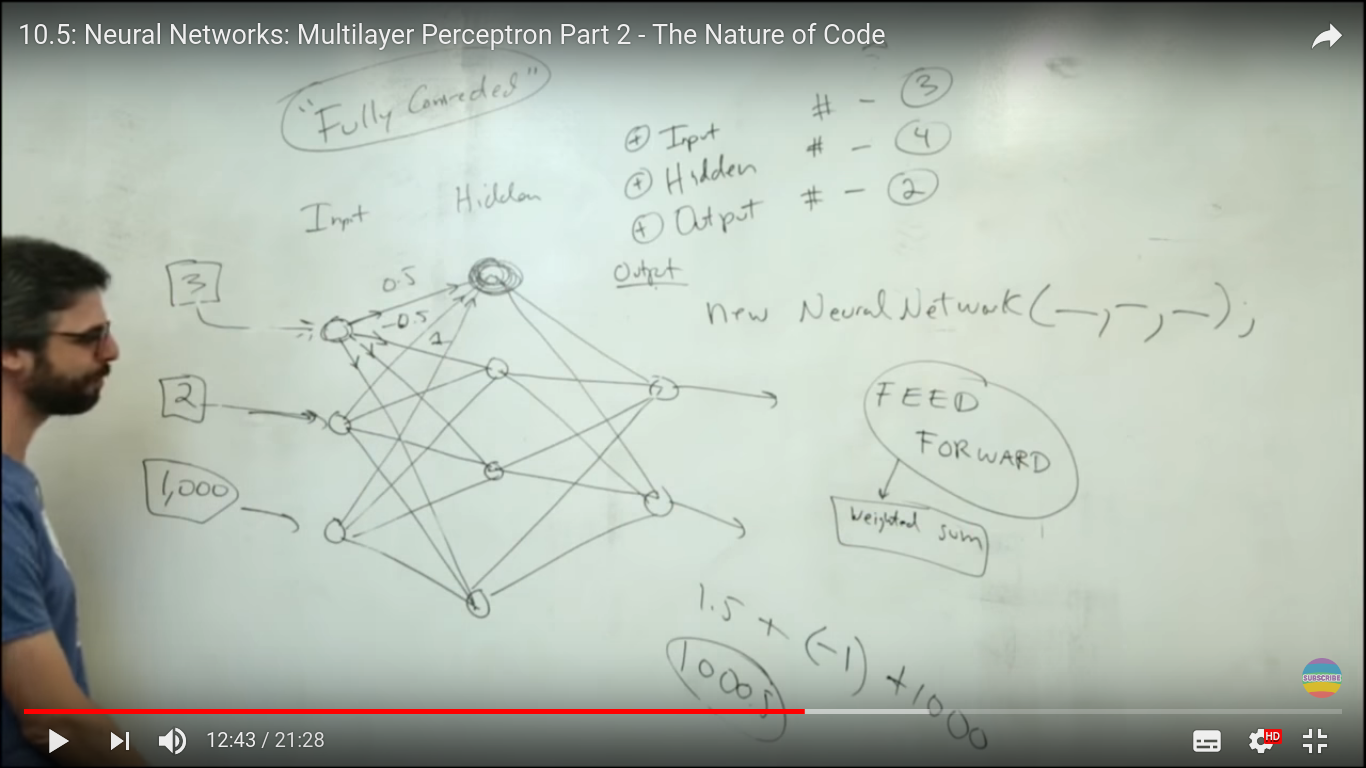 10.5: Neural Networks: Multilayer Perceptron Part 2 - The Nature of Code
"Fully Connected"
+ Input # - 3
+ Hidden # - 4
+ Output # - 2
Input
Hidden
Output
new NeuralNetwork(—,—,—);
3
0.5
-0.5
1
2
1,000
FEED
FORWARD
Weighted sum
1.5 + (-1) + 1000
1000.5
SUBSCRIBE
12:43 / 21:28
HD